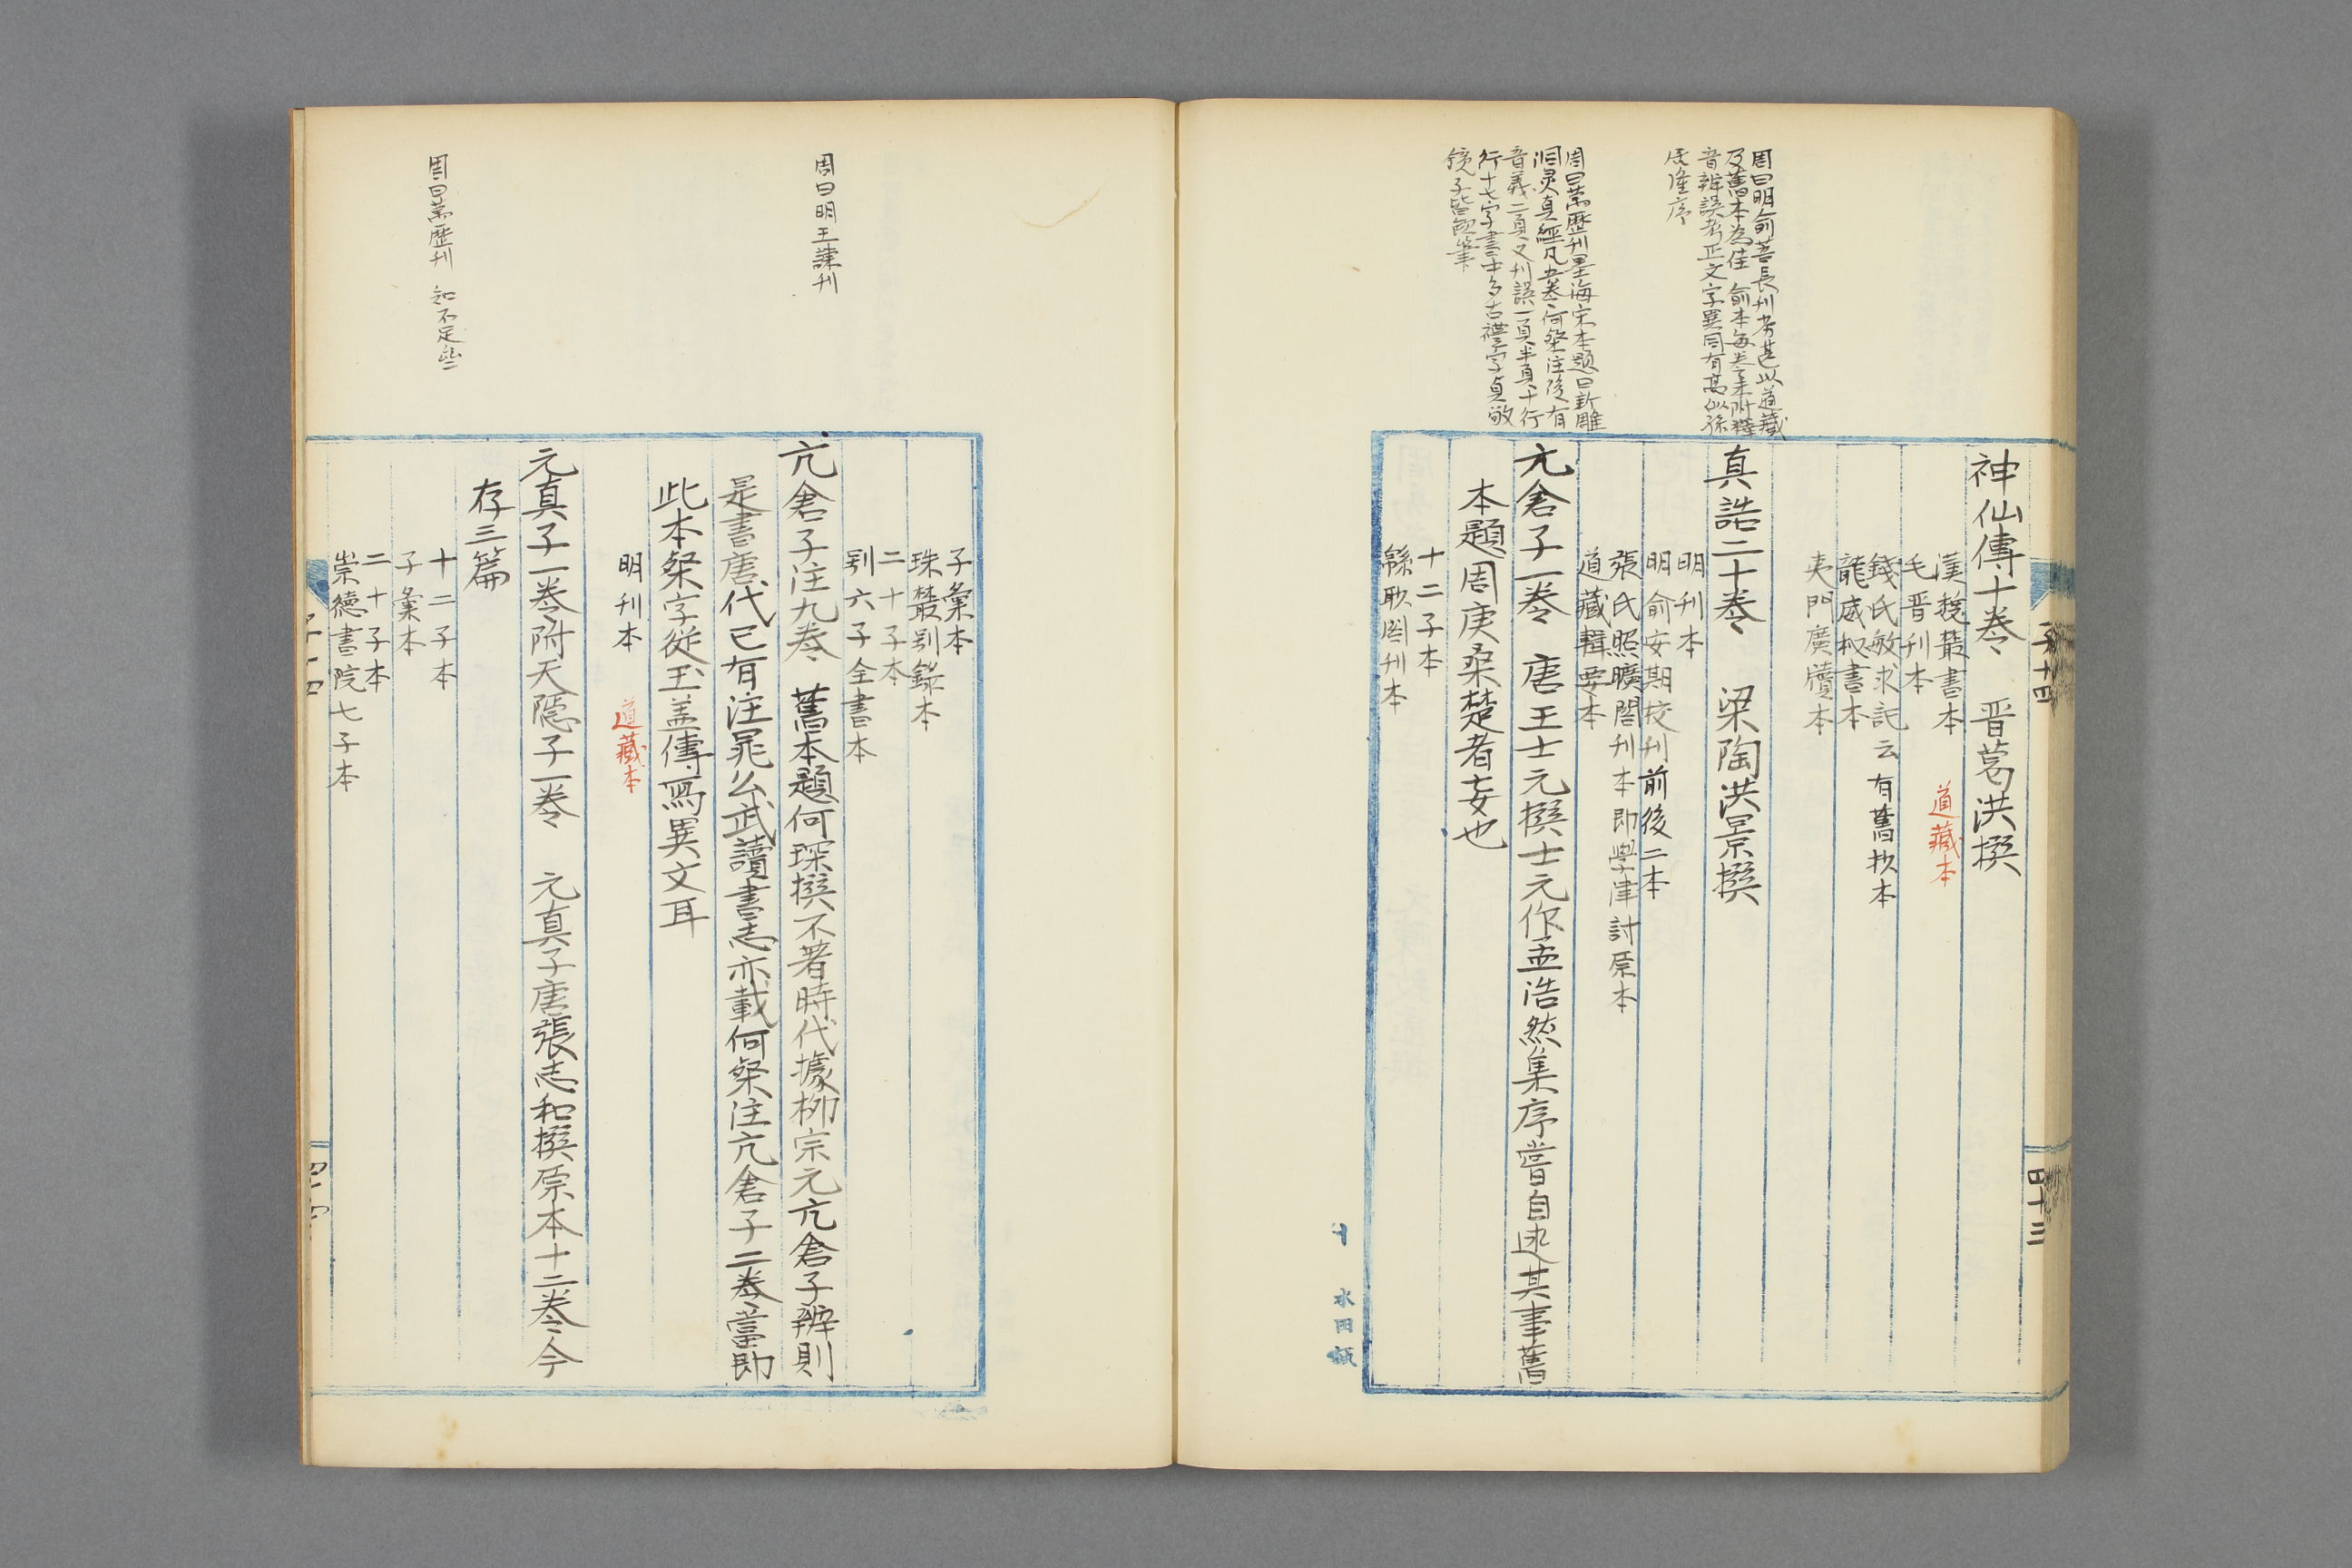 周曰明俞菩長刋者甚此道藏
及舊本為佳 俞本每卷末附釋
音辨誤考正文字異同有高似孫
序
周曰萬歷刋墨海宋本題曰新雕
洞灵真經凡五卷何粲注後有
音義二頁又刋誤一頁半頁十行
行十七字書中多古體字貞敬
鏡子皆缺筆
子十四
四十三
神仙傳十卷 晋葛洪撰
漢魏叢書本 道藏本
毛晋刋本
錢氏敏求記云有舊抄本
龍威秘書本
夷門廣牘本
真誥二十卷 梁陶洪景撰
明刋本
明俞安期校刋前後二本
張氏照曠閣刋本即學津討原本
道藏輯要本
亢倉子一卷 唐王士元撰士元作孟浩然集序嘗自述其事舊
本題周庚桑楚者妄也
十二子本
緜眇閣刋本
十 水田紙
周曰明王諫刋
周曰萬歷刋 知不足叢
子彙本
珠叢别錄本
二十子本
别六子全書本
亢倉子注九卷 舊本題何琛撰不著時代據柳宗元亢倉子辨則
是書唐代已有注晁公武讀書志亦載何粲注亢倉子二卷當即
此本粲字從玉盖傳寫異文耳
明刋本 道藏本
元真子一卷附天隱子一卷 元真子唐張志和撰原本十二卷今
存三篇
十二子本
子彙本
二十子本
崇德書院七子本
子十四
四十四